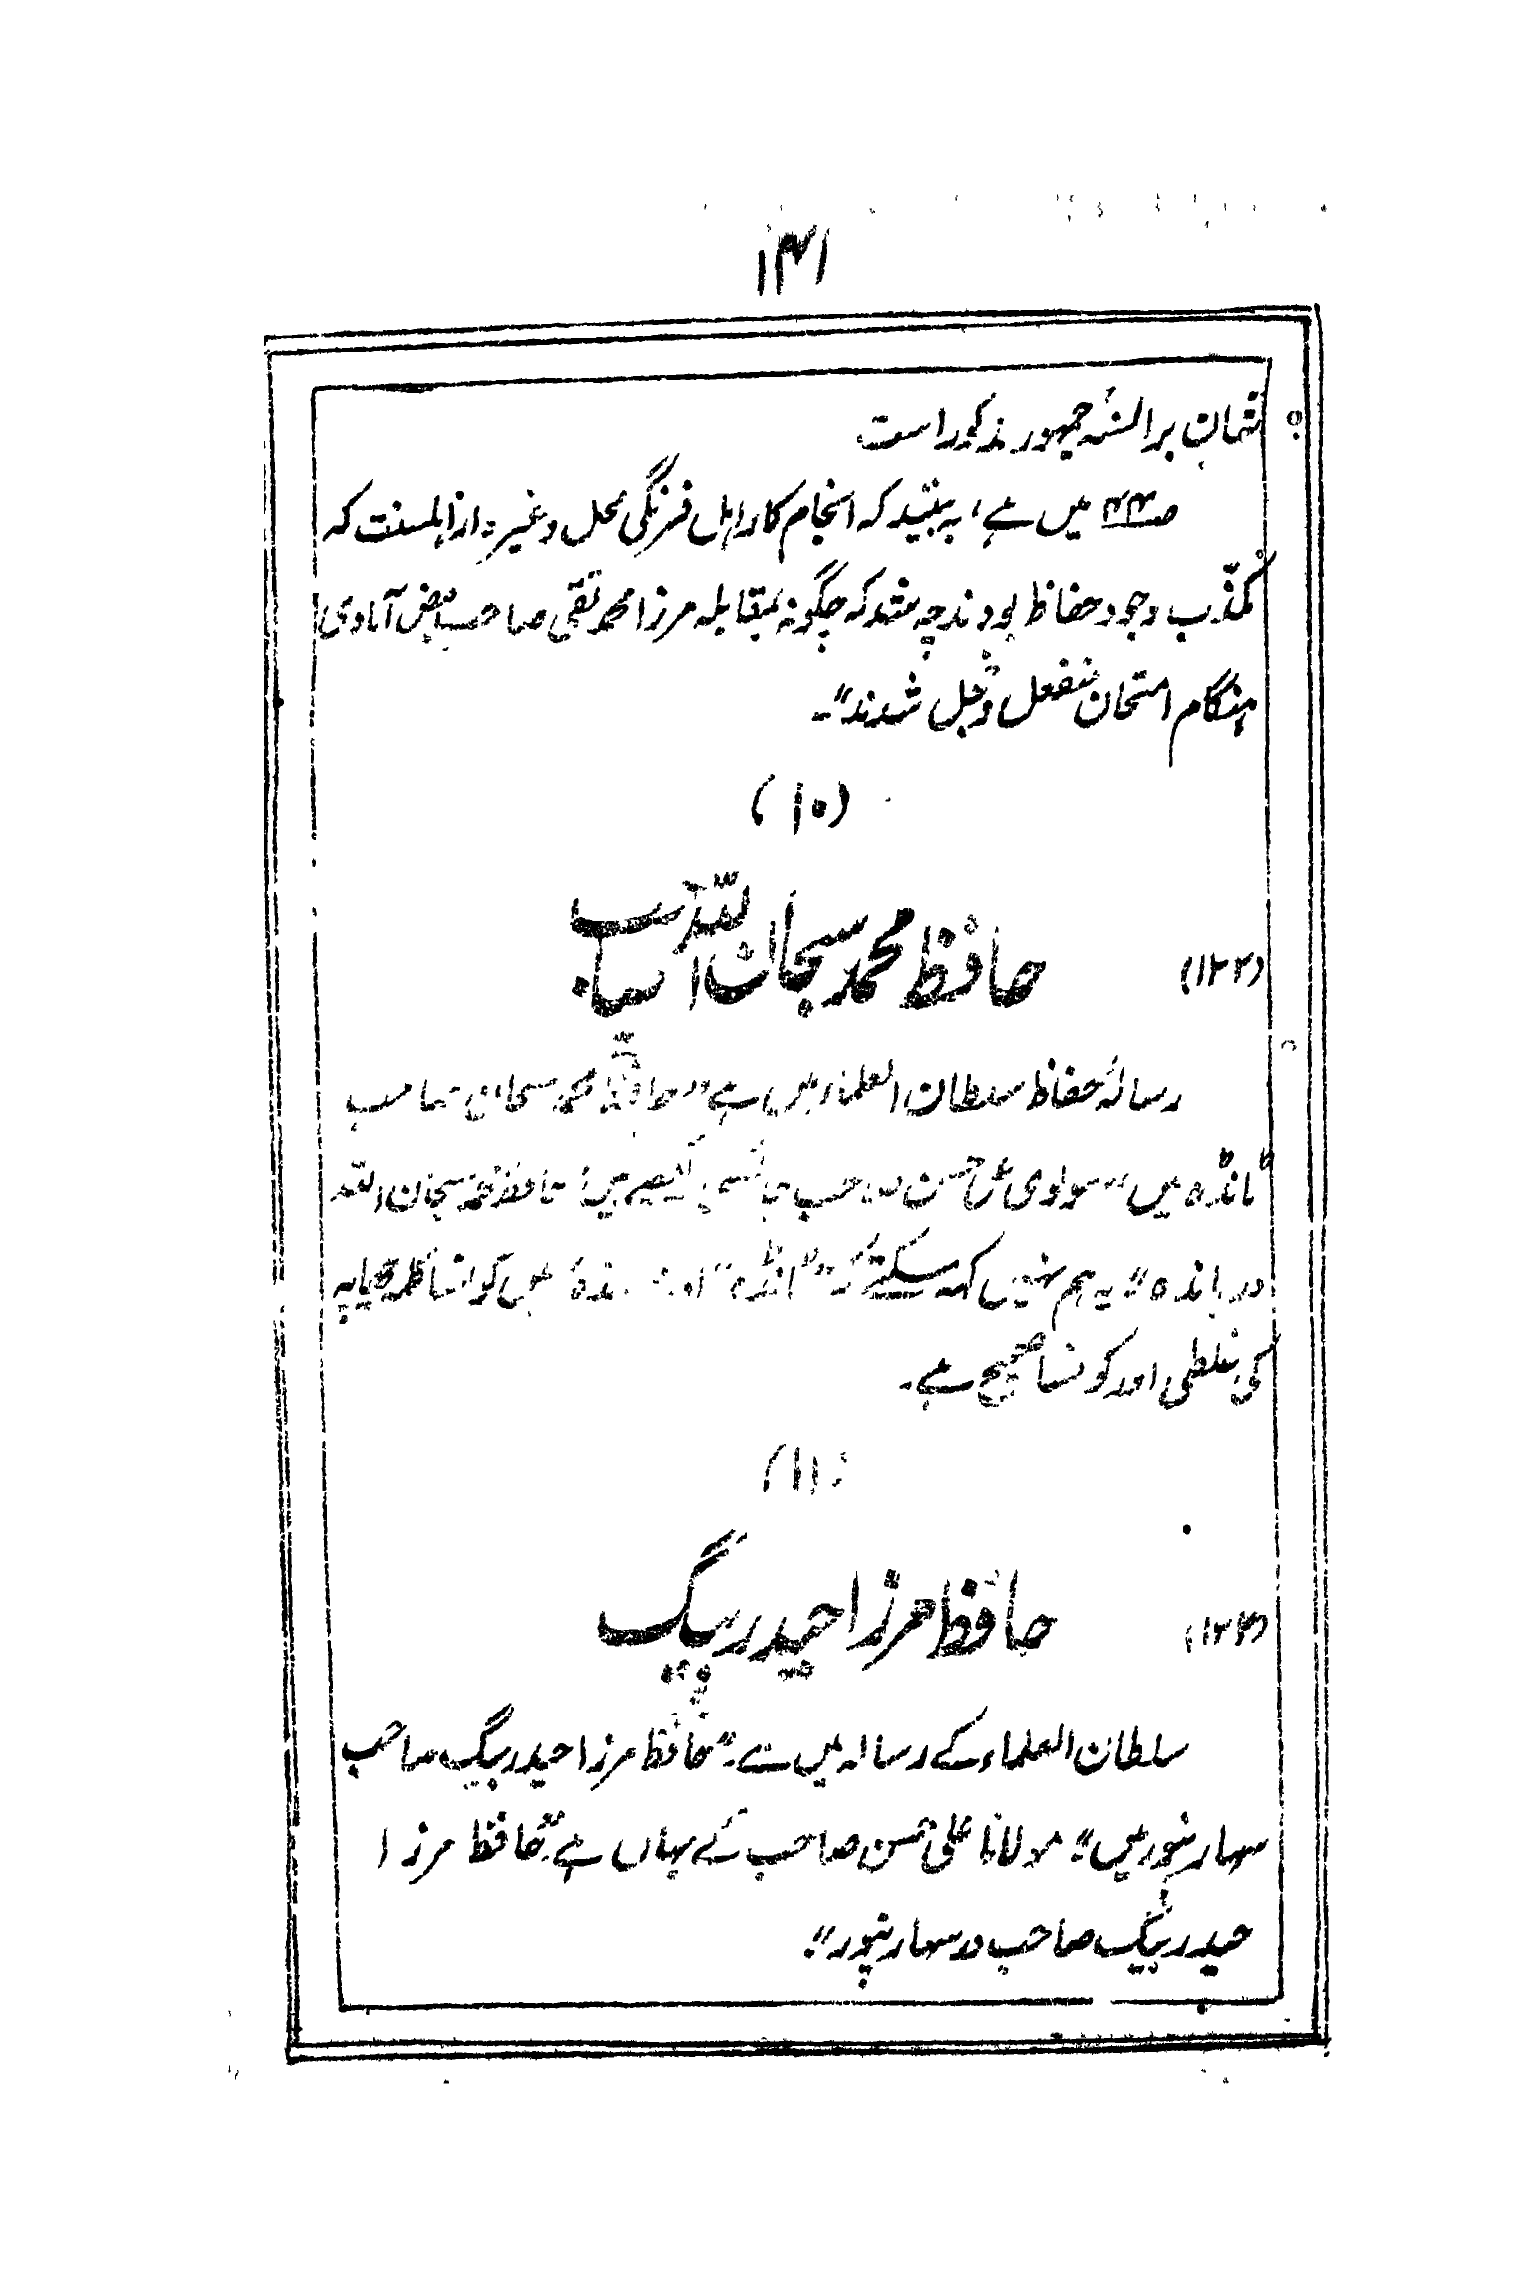 ۱۴۱
شان بر السنہ جمہور مذکور است
ص۴۴ میں ہے، بہ بینید کہ انجام کار اہل فرنگی محل وغیرہ از اہلسنت کہ
مکذّب وجود حفاظ بودند چہ شد کہ چگونہ بمقابلہ مرزا محمد تقی صاحب فیض آبادی
ہنگام امتحان منفعل و خجل شدند"۔
(۱۰)
(۱۲۳) حافظ محمد سبحان اللہ صاحب
رسالہ حفاظ سلطان العلماء میں ہے "حافظ محمد سبحان صاحب
ٹانڈہ میں" مولوی علی حسن صاحب جائسی لکھتے ہیں: حافظ محمد سبحان اللہ
در باندہ" یہ ہم نہیں کہہ سکتے کہ "ٹانڈہ" اور باندہ میں کونسا غلط چھاپہ
کی غلطی اور کونسا صحیح ہے۔
(۱۱)
(۱۲۴) حافظ مرزا حیدر بیگ
سلطان العلماء کے رسالہ میں ہے۔ "حافظ مرزا حیدر بیگ صاحب
سہارنپور میں" مولانا علی حسن صاحب کے یہاں ہے "حافظ مرزا
حیدر بیگ صاحب در سہارنپور"۔